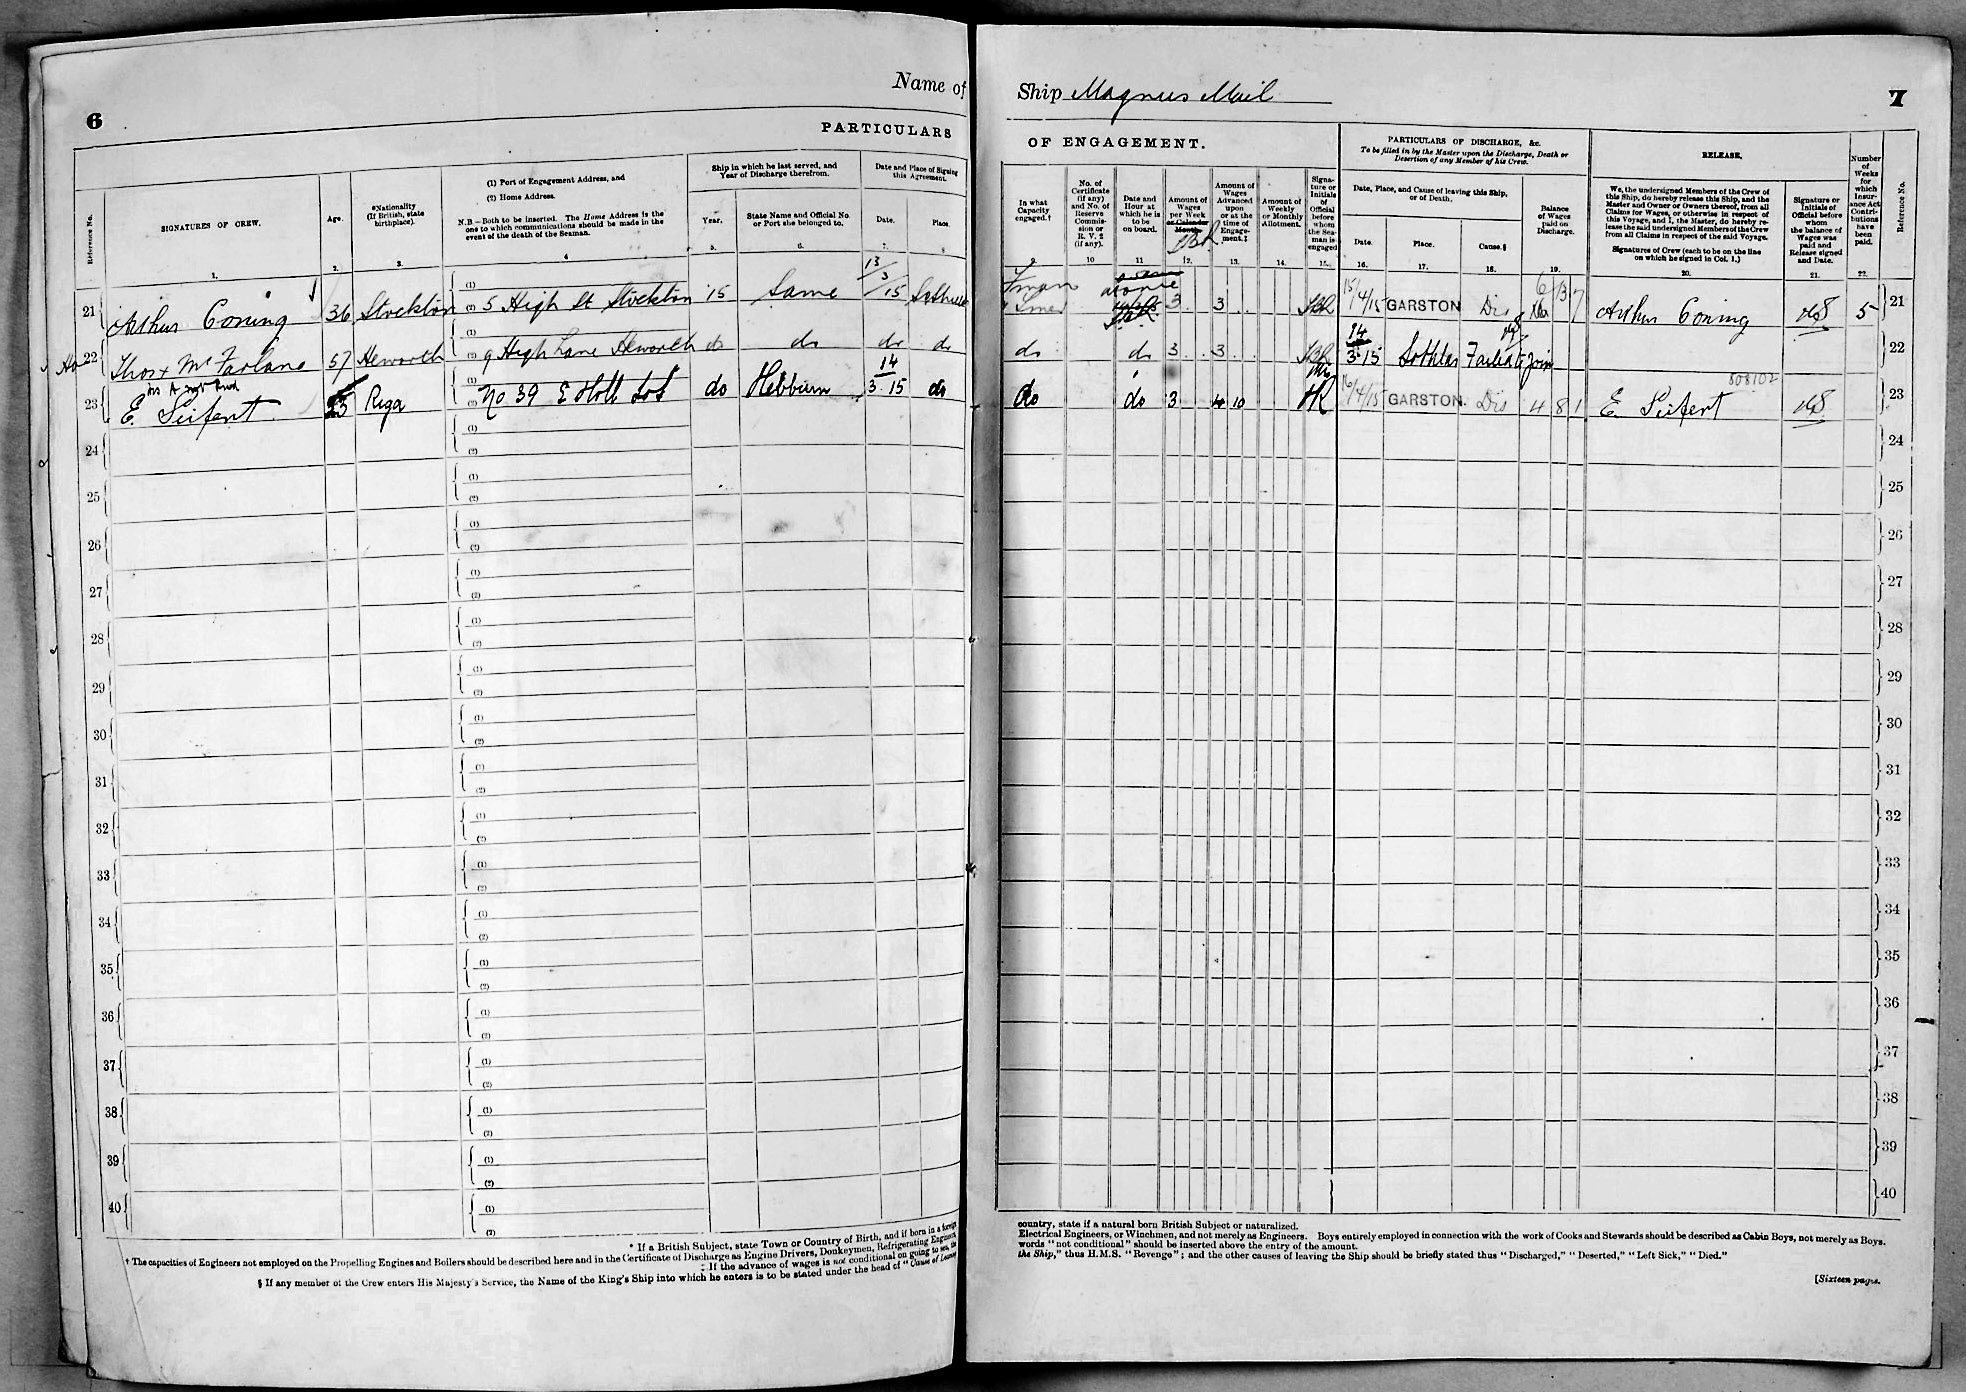 6
Name of
PARTICULARS
Reference No.
SIGNATURES OF CREW.
Age.
*Nationality
(If British, state
birthplace).
(1) Port of Engagement Address, and
(2) Home Address.
N.B.—Both to be inserted. The Home Address is the
one to which communications should be made in the
event of the death of the Seaman.
Ship in which he last served, and
Year of Discharge therefrom.
Year.
State Name and Official No.
or Port she belonged to.
Date and Place of Signing
this Agreement.
Date.
Place.
1. 2. 3. 4 5. 6. 7. 8
21 Arthur Coning 36 Stockton (1) (2) 5 High St Stockton 15 Same 13/3/15
22 Thos x McFarlane 57 Heworth (1) (2) 9 High Lane Heworth do do do do
23 E. Seifert Riga (1) (2) No 39 do Hebburn 14/3.15 do
24 (1) (2)
25 (1) (2)
26 (1) (2)
27 (1) (2)
28 (1) (2)
29 (1) (2)
30 (1) (2)
31 (1) (2)
32 (1) (2)
33 (1) (2)
34 (1) (2)
35 (1) (2)
36 (1) (2)
37 (1) (2)
38 (1) (2)
39 (1) (2)
40 (1) (2)
* If a British Subject, state Town or Country of Birth, and if born in a foreign
† The capacities of Engineers not employed on the Propelling Engines and Boilers should be described here and in the Certificate of Discharge as Engine Drivers, Donkeymen, Refrigerating Engineers,
‡ If the advance of wages is not conditional on going to sea, the
§ If any member of the Crew enters His Majesty's Service, the Name of the King's Ship into which he enters is to be stated under the head of "Cause of Leaving
Ship Magnus Mail
7
OF ENGAGEMENT.
PARTICULARS OF DISCHARGE, &c.
To be filled in by the Master upon the Discharge, Death or
Desertion of any Member of his Crew.
RELEASE.
In what
Capacity
engaged.†
No. of
Certificate
(if any)
and No. of
Reserve
Commis-
sion or
R. V. 2
(if any).
Date and
Hour at
which he is
to be
on board.
Amount of
Wages
per Week
or Calendar
Month.
Amount of
Wages
Advanced
upon
or at the
time of
Engage-
ment.‡
Amount of
Weekly
or Monthly
Allotment.
Signa-
ture or
Initials
of
Official
before
whom
the Sea-
man is
engaged
Date, Place, and Cause of leaving this Ship,
or of Death.
Date.
Place.
Cause.§
Balance
of Wages
paid on
Discharge.
We, the undersigned Members of the Crew of
this Ship, do hereby release this Ship, and the
Master and Owner or Owners thereof, from all
Claims for Wages, or otherwise in respect of
this Voyage, and I, the Master, do hereby re-
lease the said undersigned Members of the Crew
from all Claims in respect of the said Voyage.
Signatures of Crew (each to be on the line
on which he signed in Col. 1.)
Signature or
Initials of
Official before
whom
the balance of
Wages was
paid and
Release signed
and Date.
Number
of
Weeks
for
which
Insur-
ance Act
Contri-
butions
have
been
paid.
Reference No.
9 10 11 12. 13. 14. 15. 16. 17. 18. 19. 20. 21. 22.
3 3 15/4/15 GARSTON Dis Arthur Coning 5 21
do do 3 3 14/3.15 Failed to Join 22
808102
do do 3 4 10 16/4/15 GARSTON. Dis 4 8 1 E. Seifert 23
24
25
26
27
28
29
30
31
32
33
34
35
36
37
38
39
40
country, state if a natural born British Subject or naturalized.
Electrical Engineers, or Winchmen, and not merely as Engineers. Boys entirely employed in connection with the work of Cooks and Stewards should be described as Cabin Boys, not merely as Boys.
words "not conditional" should be inserted above the entry of the amount.
the Ship," thus H.M.S. "Revenge"; and the other causes of leaving the Ship should be briefly stated thus "Discharged," "Deserted," "Left Sick," "Died."
[Sixteen pages.